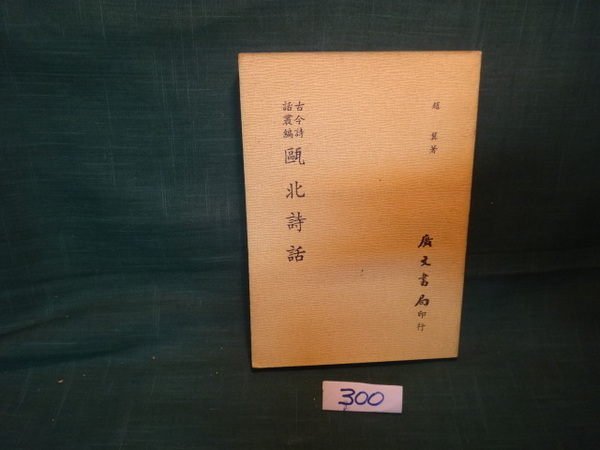 趙翼著
古今詩
話叢編
甌北詩話
廣文書局印行
300